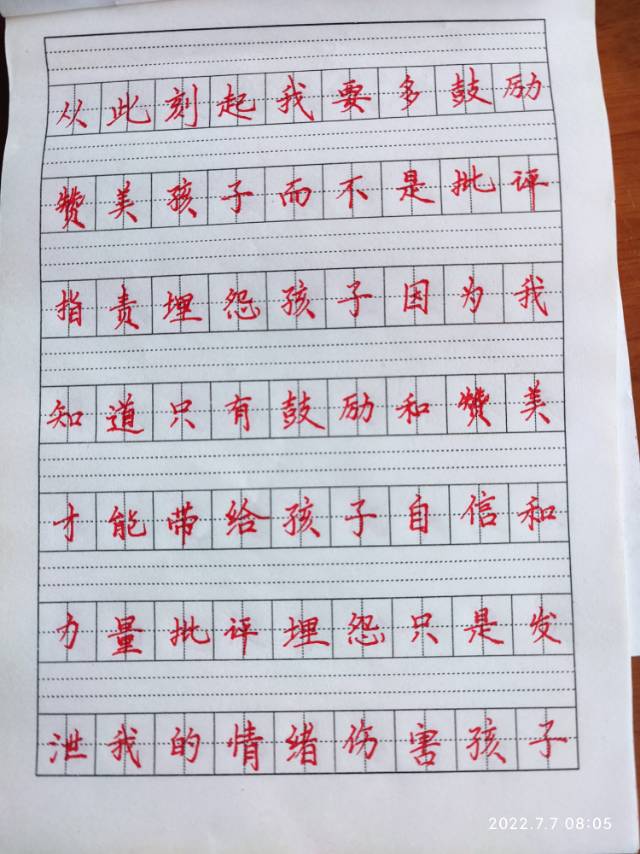 从此刻起我要多鼓励
赞美孩子而不是批评
指责埋怨孩子因为我
知道只有鼓励和赞美
才能带给孩子自信和
力量批评埋怨只是发
泄我的情绪伤害孩子
2022.7.7 08:05